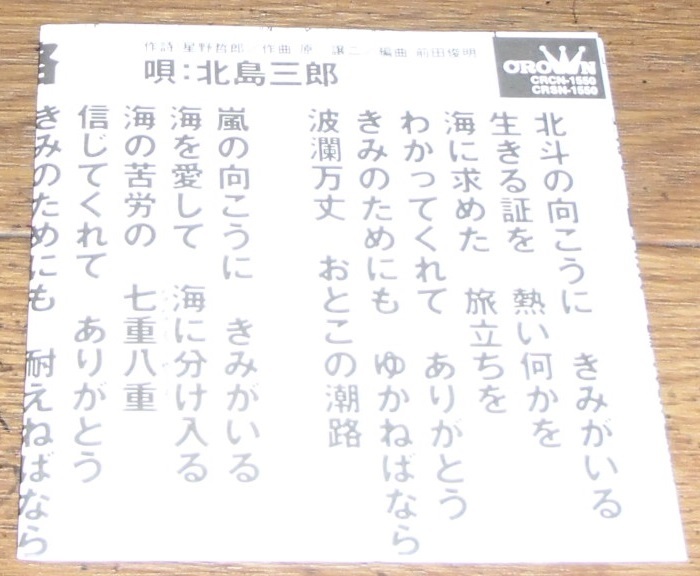 作詩 星野哲郎／作曲 原 譲二／編曲 前田俊明
唄：北島三郎
CROWN
CRCN-1550
CRSN-1550
北斗の向こうに きみがいる
生きる証を 熱い何かを
海に求めた 旅立ちを
わかってくれて ありがとう
きみのためにも ゆかねばなら
波瀾万丈 おとこの潮路
嵐の向こうに きみがいる
海を愛して 海に分け入る
海の苦労の 七重八重
信じてくれて ありがとう
きみのためにも 耐えねばなら